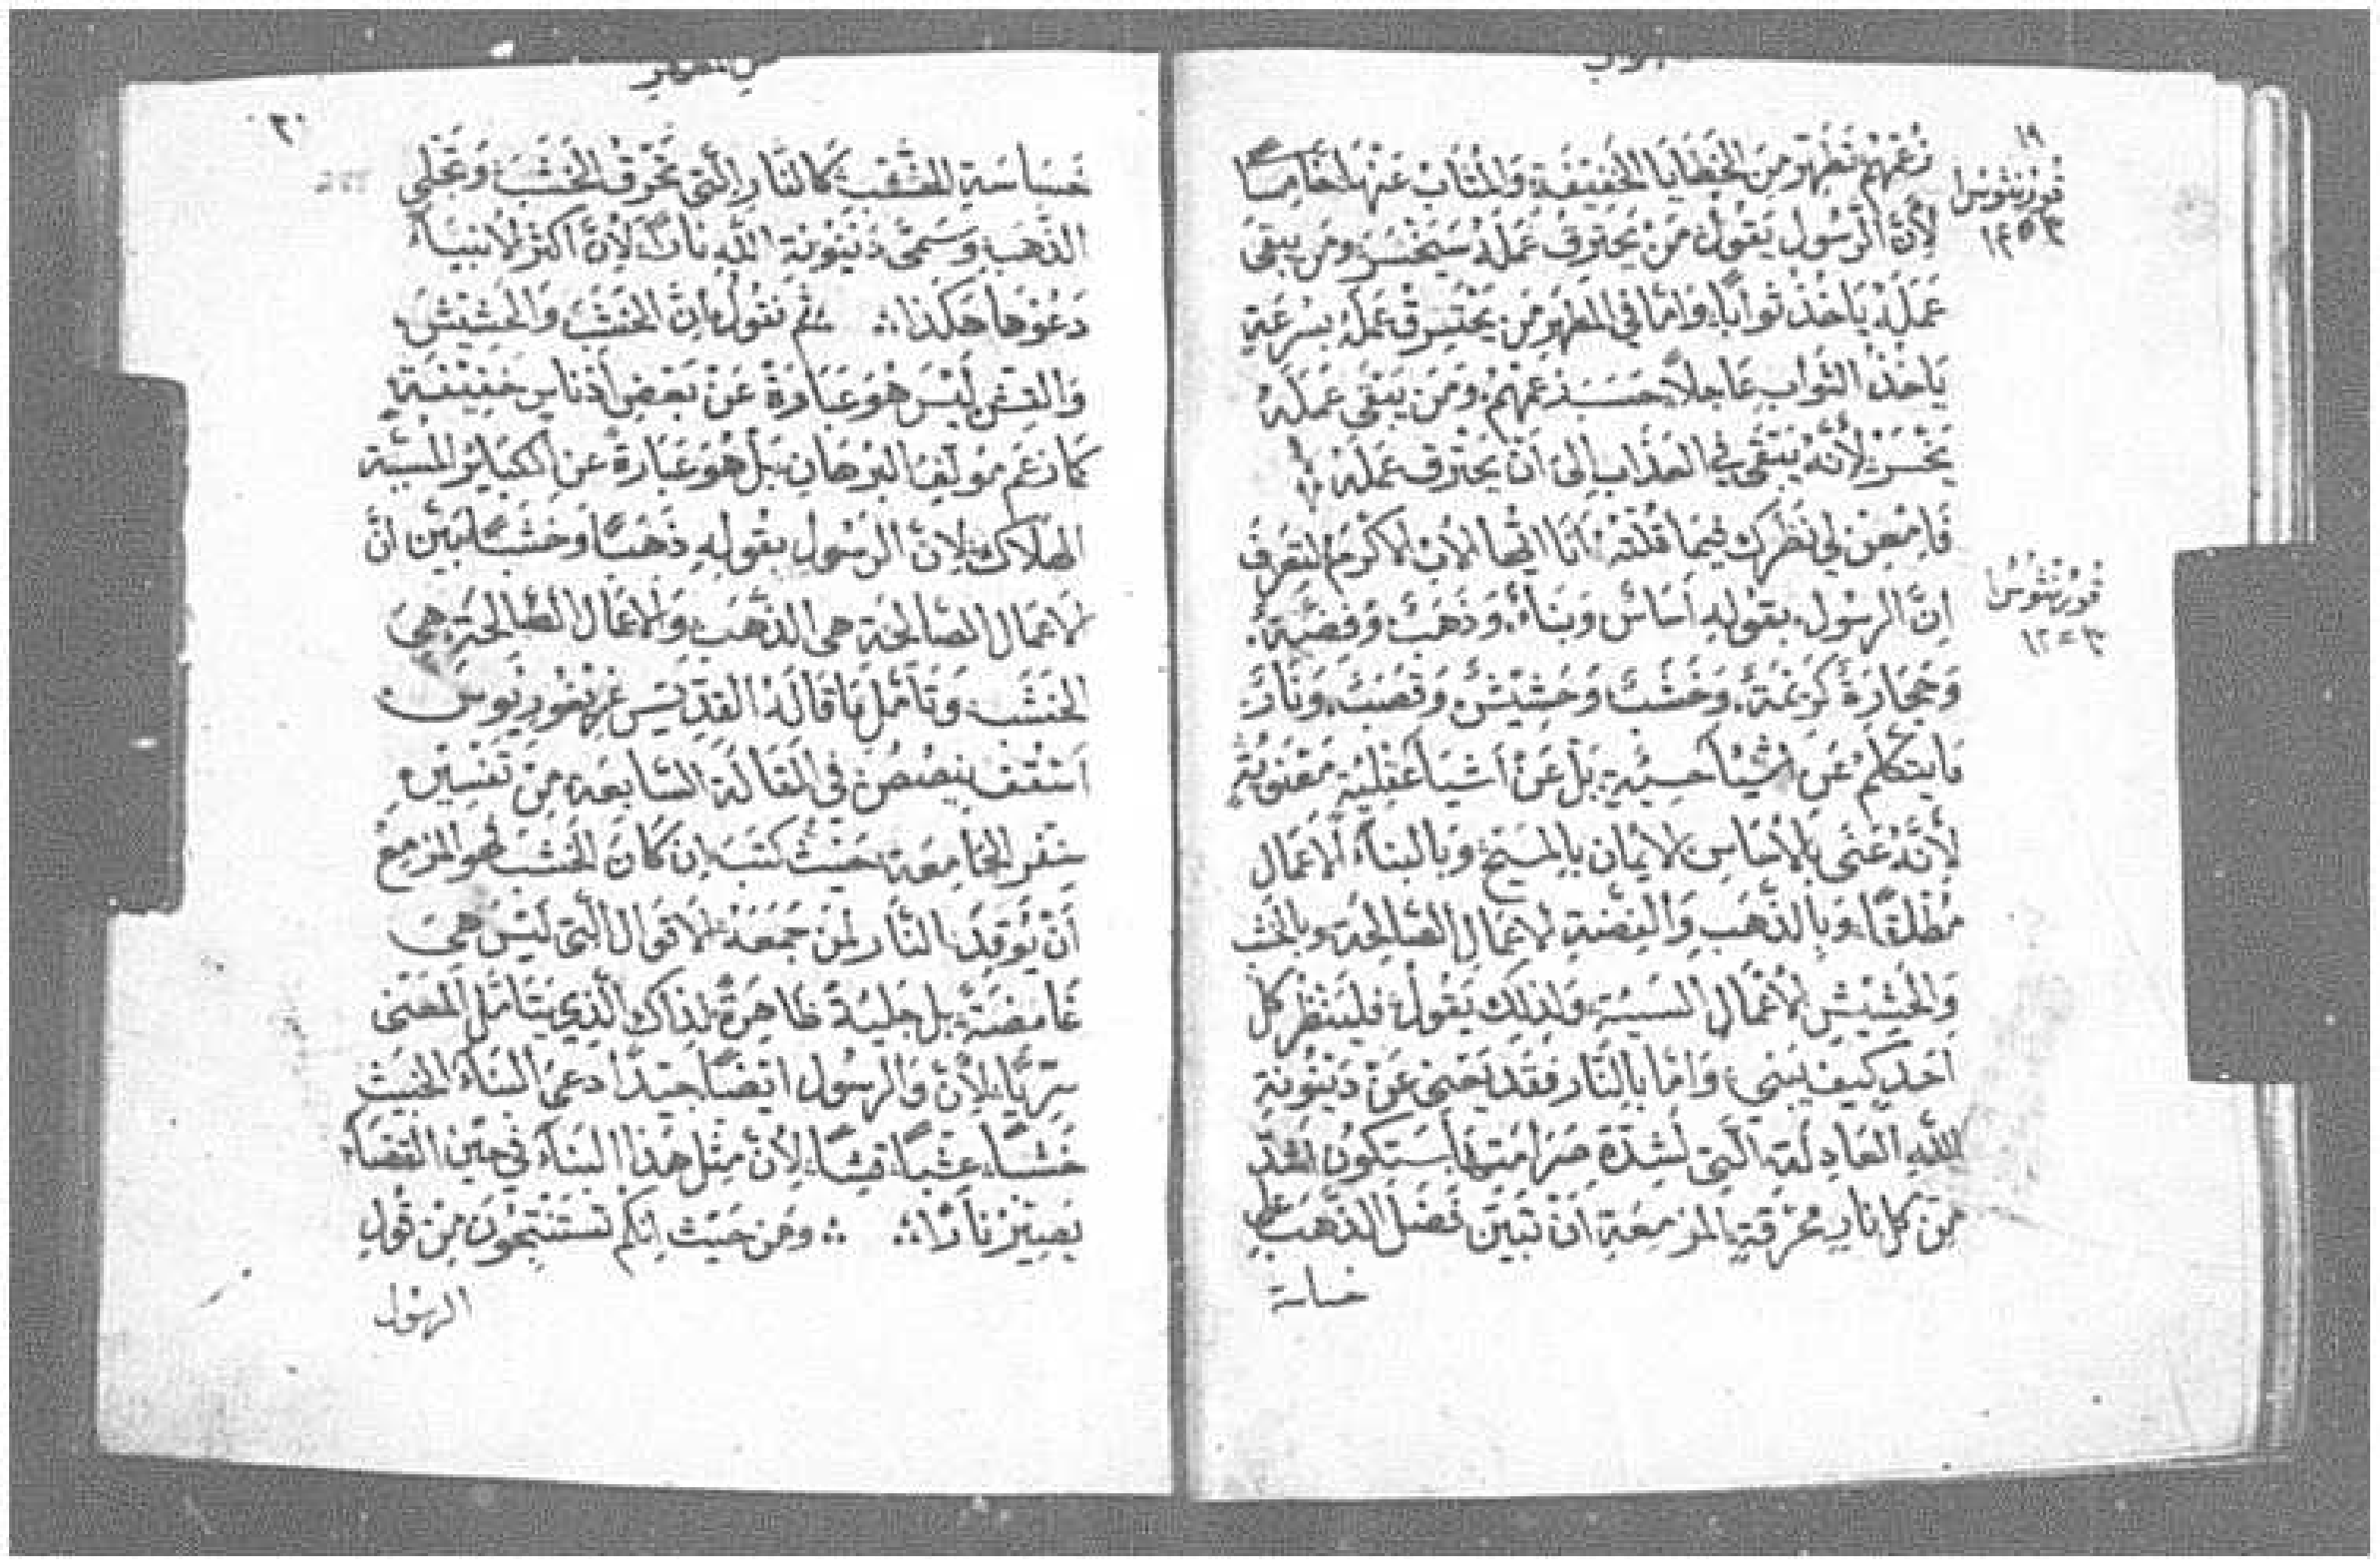 ١٩
زعمهم تطهر من الخطايا الخفيفة والمتاب عنها خامسًا
قورنثوس ١
لأنَّ الرسول يقول من يحترق عمله سيخسر ومن يبقى
عمله يأخذ ثوابًا، واما في المطهر من يحترق عمله بسرعة
ياخذ الثواب عاجلاً حسب زعمهم. ومن يبقى عمله
يخسر لأنه يبقى في العذاب إلى ان يحترق عمله
فامعن لي نظرك فيما قلته انا ايها الاب الاكرم لتعرف
قورنثوس ١
٣ = ١٢
انّ الرسول بقوله أساس وبناء، وذهب وفضة
وحجارة كريمة، وخشب وحشيش وقصب ونار
ما يتكلم عن اشيا حسية بل عن اشيا عقلية
لأنه عنى بالأساس لايمان بالمسيح وبالبناء الاعمال
مطلقًا، وبالذهب والفضة لاعمال الصالحة وبالخشب
والحشيش الأعمال السيية ولذلك يقول فلينظر كل
احد كيف يبني، واما بالنار فقد عنى عن دينونة
الله العادلة التي لشدة صرامتها ستكون اشد
من كل نار محرقة المزمعة ان تبين فضل الذهب على
خساسة
عن المطهر
٢٠
خساسة الخشب كالنار التي تحرق الخشب وتجلي
الذهب وسمى دينونة الله نارًا لأنّ اكثر الانبياء
دعوها هكذا ثم نقول ان الخشب والحشيش
والقش ليس هو عبارة عن بعض أدناس خفيفة
كما زعم مولف البرهان بل هو عبارة عن الكباير المسببة
الهلاك لانّ الرسول بقوله ذهبًا وخشبًا يبين انّ
لاعمال الصالحة هي الذهب والاعمال الطالحة هي
الخشب وتأمل ما قاله القديس غريغوريوس
اسقف نيصص في المقالة السابعة من تفسير
سفر الجامعة حيث كتب إن كان الخشب هو المزمع
أن يوقد النار لمن جمعه لاقوال التي ليس هي
غامضة بل جلية ظاهرة لذاك الذي يتأمل المعنى
سريًا لأن والرسول ايضًا جيدًا دعى البناء الخبيث
خشبًا، عشبًا، قشًا، لأن مثل هذا البناء في حين القضاء
يصير نارًا ومن حيث انكم تستنتجون من قول
الرسول